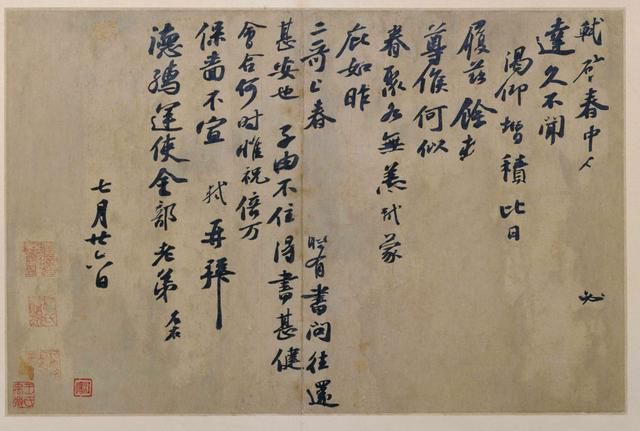 軾啓春中人 必
達久不聞
渴仰增積比日
履茲餘
尊候何似
眷聚各無恙軾蒙
庇如昨
二哥上春 有書問往還
甚安也子由不住得書甚健
會合何時惟祝倍万
保嗇不宣 軾再拜
德孺運使金部老弟
七月廿六日